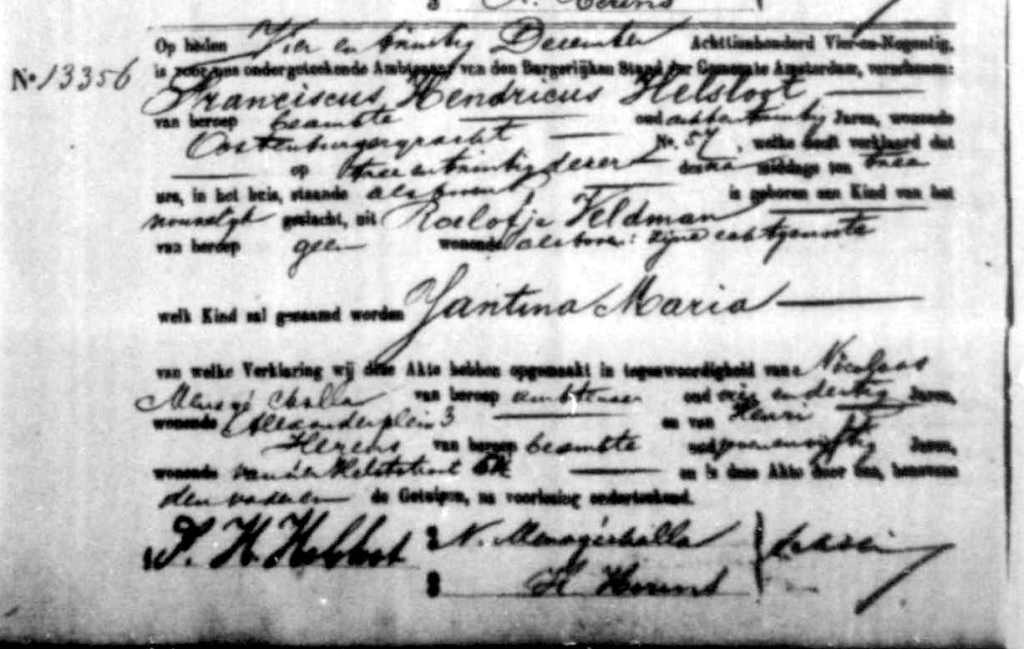 H. Herens
Op heden Vier en twintig December Achttienhonderd Vier-en-Negentig,
No 13356 is voor ons ondergeteekende Ambtenaar van den Burgerlijken Stand der Gemeente Amsterdam, verschenen:
Franciscus Hendricus Helsloot
van beroep beambte oud acht en twintig Jaren, wonende
Oostenburgergracht No. 57, welke heeft verklaard dat
op twee en twintig dezer des na middags ten twee
ure, in het huis, staande alsboven is geboren een Kind van het
vrouwelijk geslacht, uit Roelofje Veldman
van beroep geen wonende alsboven: zijne echtgenoote
welk Kind zal genaamd worden Jantina Maria
van welke Verklaring wij deze Akte hebben opgemaakt in tegenwoordigheid van Nicolaas
van beroep ambtenaar oud en dertig Jaren,
wonende Alexanderplein 3 en van Henri
Herens van beroep beambte oud Jaren,
wonende en is deze Akte door ons, benevens
den vader en de Getuigen, na voorlezing onderteekend.
F. H. Helsloot N.
H. Herens